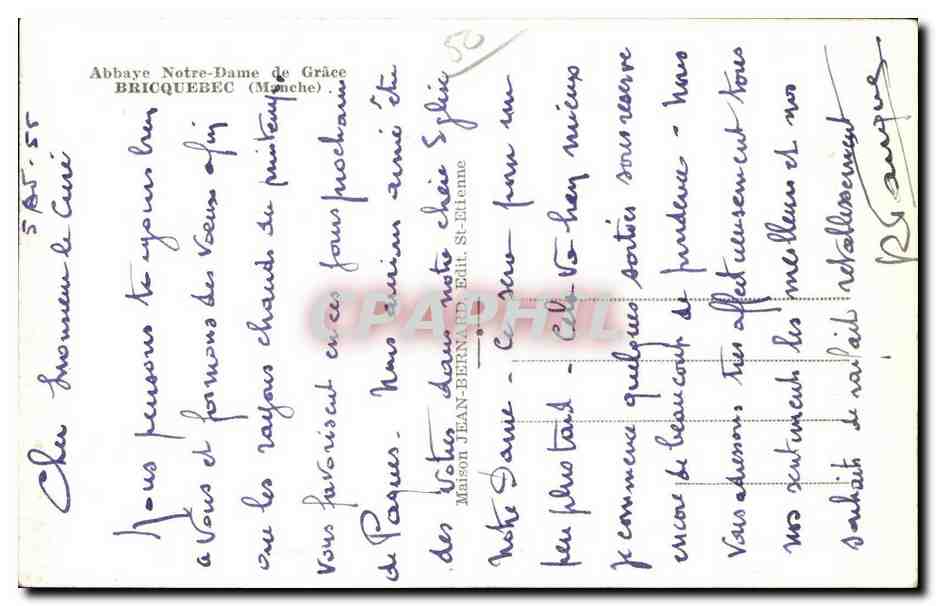 Abbaye Notre-Dame de Grâce
BRICQUEBEC (Manche).
50
5 Av. 55
Cher Monsieur le Curé
Nous pensons toujours bien
à vous et formons des vœux afin
que les rayons chauds du printemps
vous favorisent en ces jours prochains
de Paques. Nous aurions aimé être
des Votres dans notre chère Eglise
Notre Dame - Ce sera pour un
peu plus tard - Cela va bien mieux
je commence quelques sorties sous réserve
encore de beaucoup de prudence - Nous
vous adressons très affectueusement tous
nos sentiments les meilleurs et nos
souhaits de parfait rétablissement
Maison JEAN-BERNARD, Edit. St-Etienne
CPAPHIL